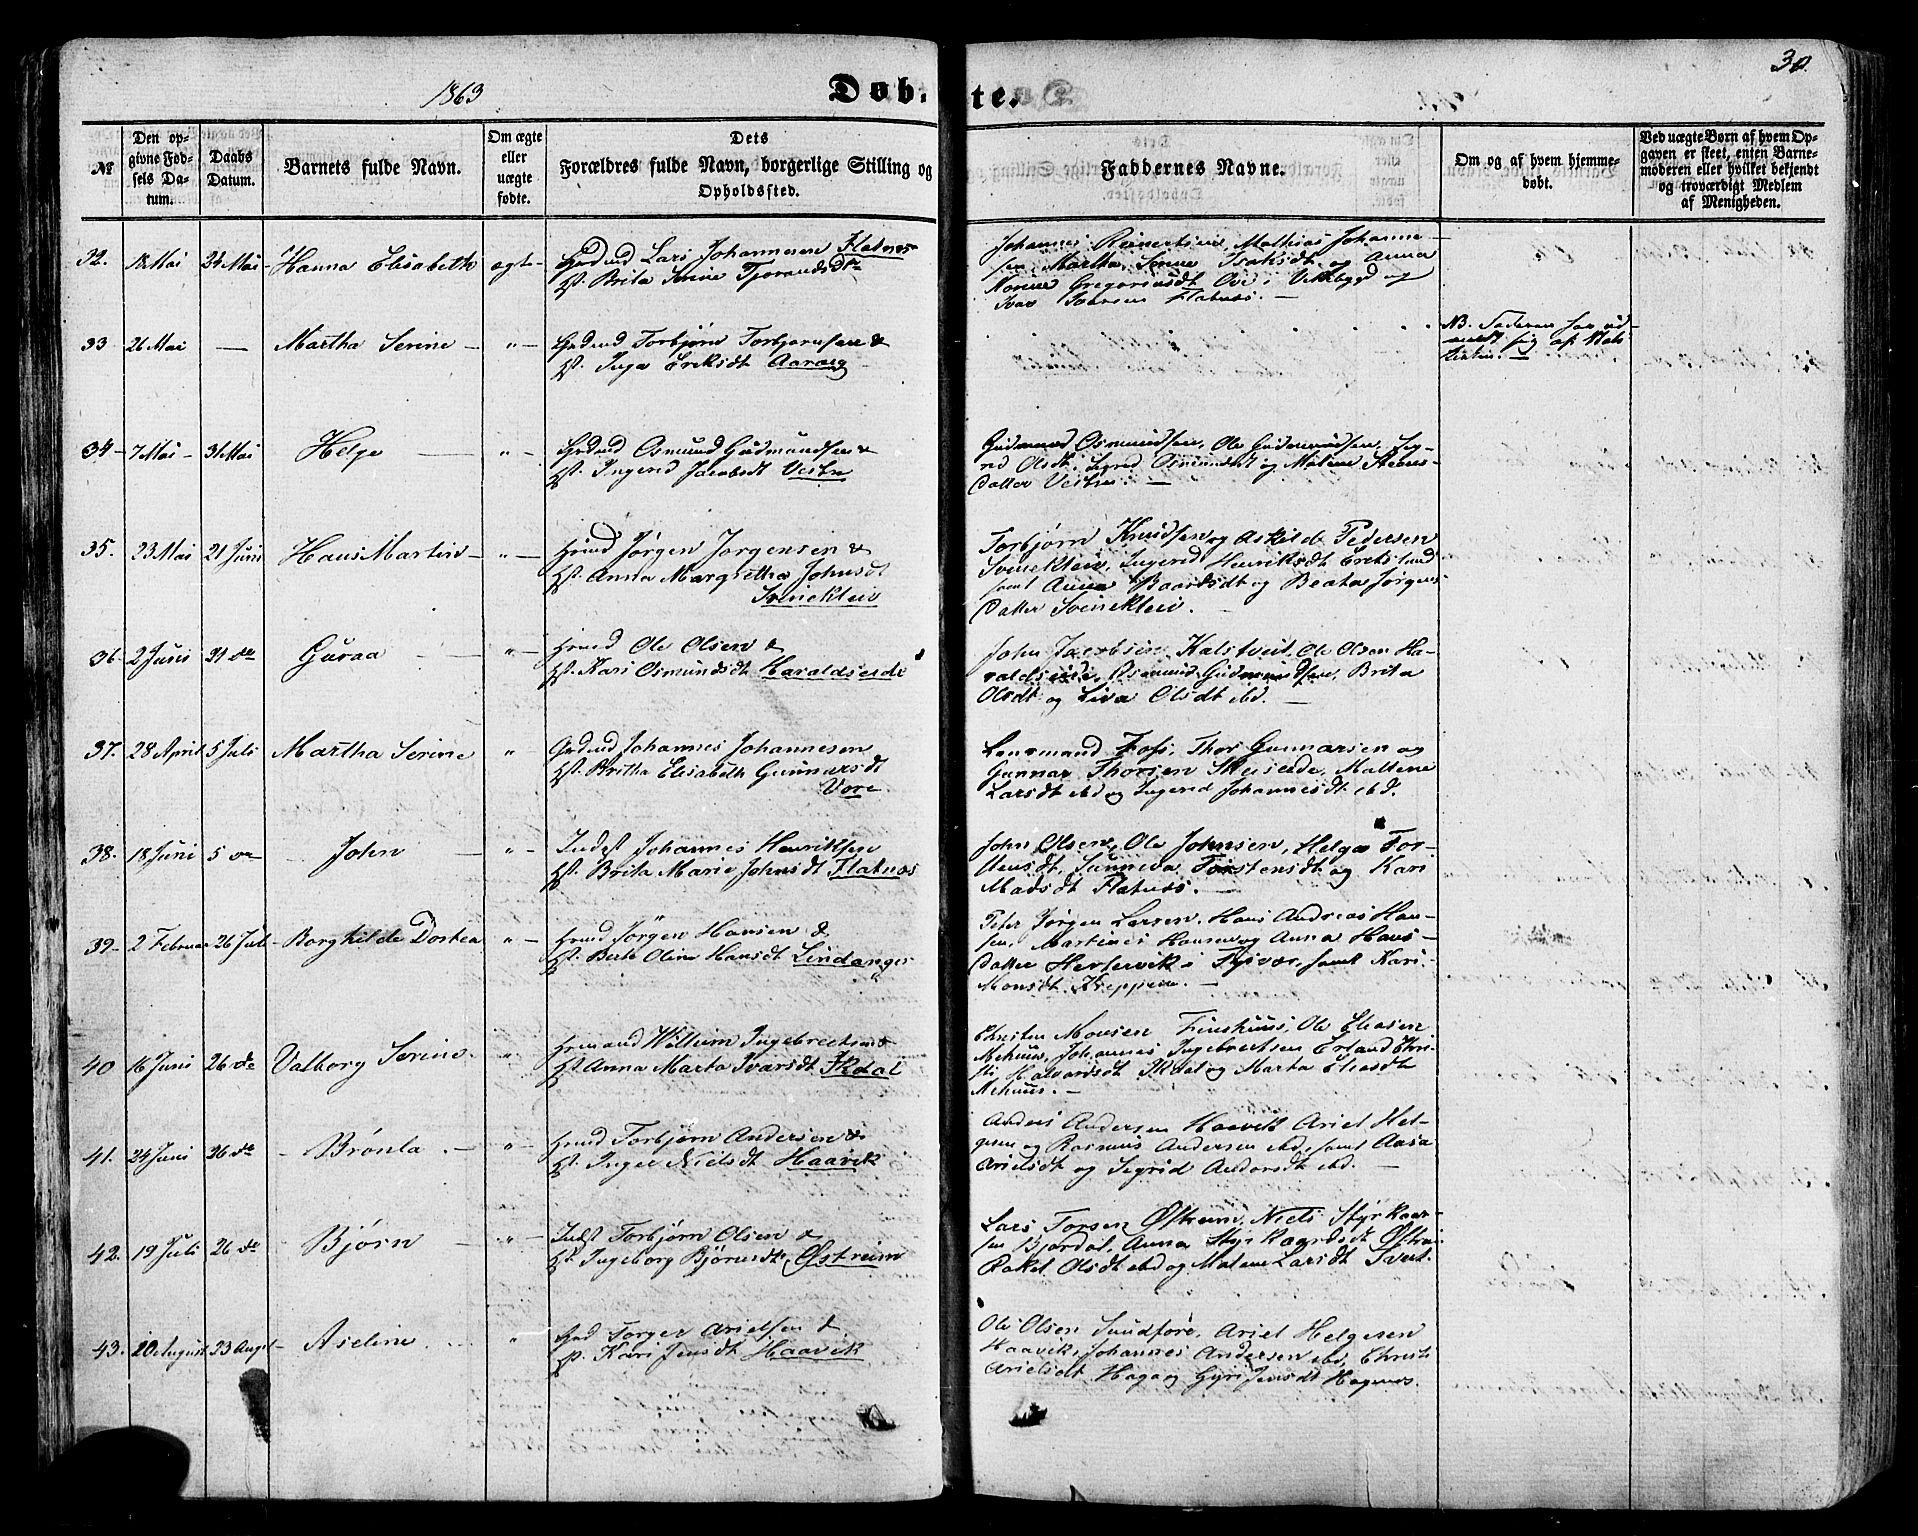 1863
Døb. te.
30.
№
Den op-
givne Fød-
sels Da-
tum.
Daabs
Datum.
Barnets fulde Navn.
Om ægte
eller
uægte
fødte.
Dets
Forældres fulde Navn, borgerlige Stilling og
Opholdssted.
Faddernes Navne.
Om og af hvem hjemme-
døbt.
Ved uægte Børn af hvem Op-
gaven er skeet, enten Barne-
moderen eller hvilket bekjendt
og troværdigt Medlem
af Menigheden.
32. 12 Mai 24 Mai Hanna Elisabeth ægt-
Grdmd Lars Johannesen Flatnes
Hst. Brita Serine Tjerandsdtr
Johannes Reinertsen, Mathias Johanne-
sen Martha Serine Isaksdt og Anna
Gregoriusdt Ove i Vikebygd og
Ivar Iversen Flatnes. —
33 26 Mai — Martha Serine — „ —
Grdmd Torbjørn Torbjørnsen &
Hst. Inga Eriksdt Aaræg
NB. Faderen har ud-
meldt sig af Stats-
kirken. —
34 — 7 Mai — 31 Mai Helge — „ —
Grdmd Osmund Gudmundsen &
Hst. Ingerid Jacobsdt Vestbø
Gudmund Osmundsen, Ole Gudmundsen, Sig-
rid Olsdt, Sigrid Osmundsdt og Malene Steens-
datter Vestbø. —
35. 23 Mai 21 Juni Hans Martin — „ —
Hmd Jørgen Jørgensen &
Hst. Anna Margretha Johnsdt
Svinekleiv
Torbjørn Knudsen og Askilde Pedersen
Svinekleiv, Ingerid Henriksdt Eretsland
samt Anna Baardsdt og Beata Jørgens-
datter Svinekleiv.
36. 2 Juni 21 de Guraa — „ —
Hmd Ole Olsen &
Hst. Kari Osmundsdt Haraldseide
John Jacobsen Kalstveit, Ole Olsen Ha-
raldseide, Osmund Gudmundsen, Brita
Olsdt og Liva Olsdt ibd. —
37. 28 April 5 Juli Martha Serine „
Grdmd Johannes Johannesen
Hst. Britha Elisabeth Gunnarsdt
Vore
Lensmand Foss, Thor Gunnarsen og
Gunnar Thorsen Skeiseide, Maltene
Larsdt ibd og Ingerid Johannesdt ibd.
38. 18 Juni 5 de — John — „ —
Indst Johannes Henriksen
Hst. Brita Marie Johnsdt Flatnæs
John Olsen, Ole Johnsen, Helga Tor-
stensdt, Sunniva Torstensdt og Kari
Madsdt Flatnæs. —
39 — 2 Februar 26 Juli Borghilde Dorthea „ —
Hmd Jørgen Hansen &
Hst. Berte Oline Hansdt Lindanger
Peter Jørgen Larsen, Hans Andreas Han-
sen, Martines Hansen og Anna Hans-
datter Hertervik i Tysvær, samt Kari
Monsdt Kreppene. —
40 16 Juni 26 de Valborg Serine. „
Hmand Willum Ingebretsen &
Hst Anna Marta Ivarsdt Økdal
Christen Monsen Finshuus, Ole Eliasen
Mehuus, Johannes Ingebretsen Erland Chri-
sti Halvardsdt Økdal og Marta Eliasdt
Mehuus. —
41. 24 Juni 26 de — Brønla. — „ —
Hmd Torbjørn Andersen &
Hst. Inger Nielsdt Haavik
Anders Andersen Haavik Ariel Hel-
gesen og Rasmus Andersen ibd, samt Aasa
Arielsdt og Sigrid Andersdt ibd. —
42. 19 Juli 26 de — Bjørn — „ —
Indst Torbjørn Olsen &
Hst Ingeborg Bjørnsdt Østreim
Lars Torsen Østreim, Niels Styrkaar-
sen Bjordal, Anna Styrkaardsdt Østrei
Rakel Olsdt ibd og Malene Larsdt
43. 20 August 23 Augst — Aseline. „
Grd Torger Arielsen &
Hst. Kari Jensdt Haavik
Ole Olsen Sundføre, Ariel Helgesen
Haavik, Johannes Andersen ibd, Christi
Arielsdt Haga og Gyri Jensdt Hognæs.